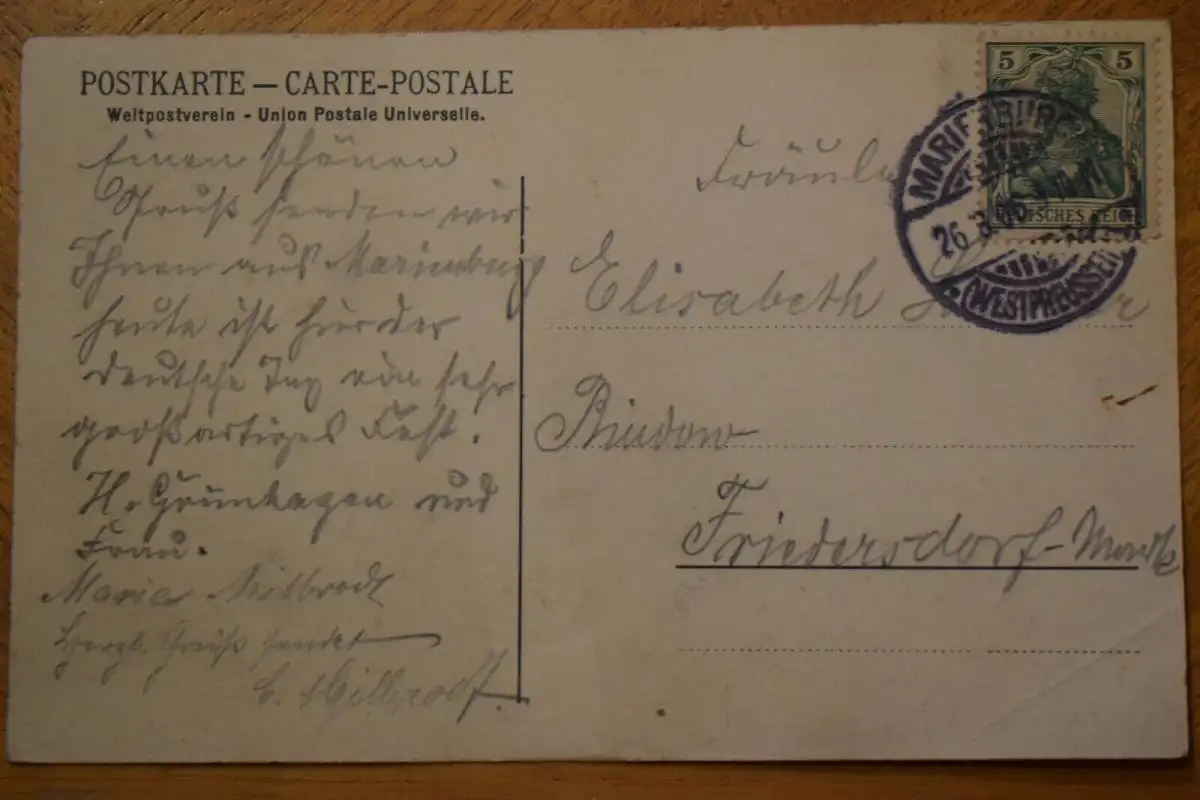 POSTKARTE — CARTE-POSTALE
Weltpostverein - Union Postale Universelle.
Einen schönen
Gruß senden wir
Ihnen aus Marienburg
heute ist hier der
deutsche Tag ein sehr
großartiges Fest.
H. Grünhagen und
Frau.
Maria Milbrodt
Herzl. Gruß sendet
Milbrodt.
5 5
DEUTSCHES REICH
MARIENBURG
26.8.
(WESTPREUSSEN)
Fräulein
Elisabeth
Bindow
Friedersdorf-Mark